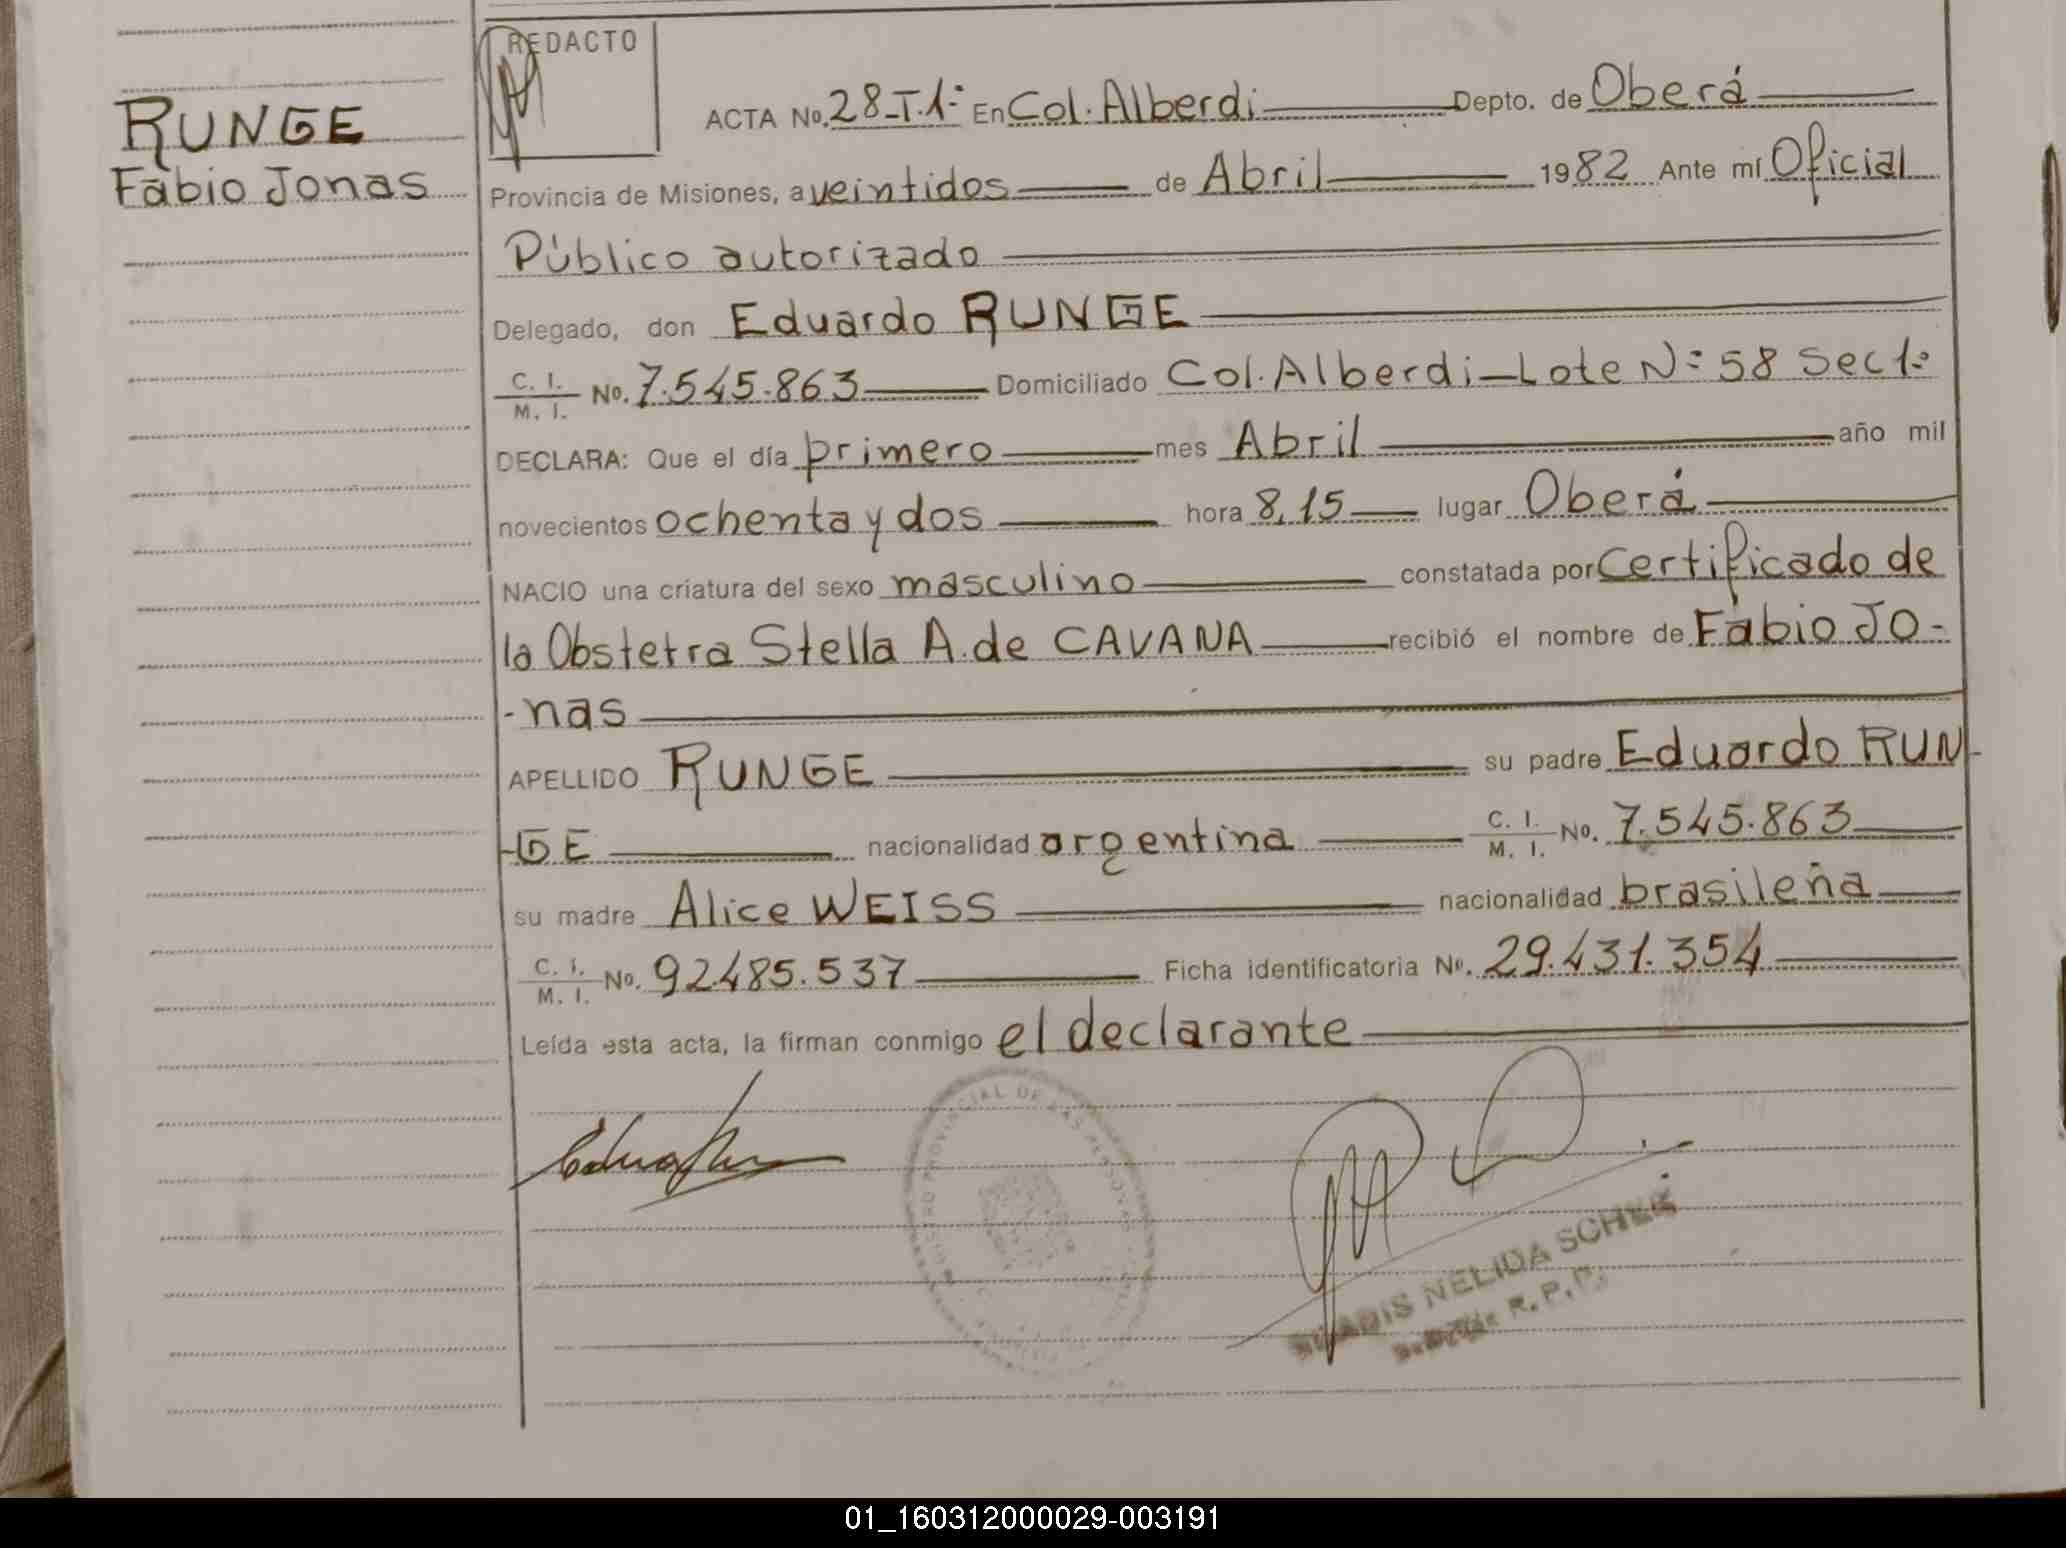 RUNGE
Fabio Jonas
REDACTO
ACTA No. 28-T.1º En Col. Alberdi Depto. de Oberá
Provincia de Misiones, a veintidos de Abril 1982 Ante mí Oficial
Público autorizado
Delegado, don Eduardo RUNGE
C. I. / M. I. No. 7.545.863 Domiciliado Col. Alberdi-Lote Nº 58 Sec 1º
DECLARA: Que el día primero mes Abril año mil
novecientos ochenta y dos hora 8,15 lugar Oberá
NACIO una criatura del sexo masculino constatada por Certificado de
la Obstetra Stella A. de CAVANA recibió el nombre de Fabio Jo-
-nas
APELLIDO RUNGE su padre Eduardo RUN-
-GE nacionalidad argentina C. I. / M. I. No. 7.545.863
su madre Alice WEISS nacionalidad brasileña
C. I. / M. I. No. 92.485.537 Ficha identificatoria No. 29.431.354
Leída esta acta, la firman conmigo el declarante
PROVINCIAL DE LAS PERSONAS
NELIDA
R.P.P.
01_160312000029-003191